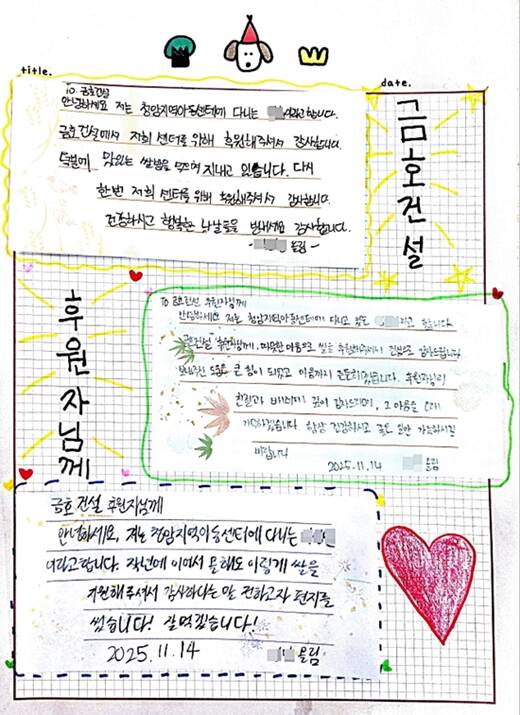 title.
date.
금호건설
후원자님께
To 금호건설
안녕하세요 저는 청암지역아동센터에 다니는 라고합니다.
금호건설에서 저희 센터를 위해 후원해주셔서 감사합니다.
덕분에 맛있는 쌀밥을 먹으며 지내고 있습니다. 다시
한번 저희 센터를 위해 후원해주셔서 감사합니다.
건강하시고 행복한 나날들을 보내세요 감사합니다.
- 올림 -
To 금호건설 후원자님께
안녕하세요 저는 청암지역아동센터에 다니고 있는 라고 합니다
금호건설 후원자님께. 따뜻한 마음으로 쌀을 후원해주셔서 진심으로 감사드립니다
보내주신 도움은 큰 힘이 되었고 마음까지 든든해졌습니다. 후원자님의
친절과 배려에 깊이 감사드리며, 그 마음을 오래
기억하겠습니다 항상 건강하시고 좋은 일만 가득하시길
바랍니다
2025.11.14 올림
금호건설 후원자님께
안녕하세요, 저는 청암지역아동센터에 다니는
이라고합니다. 작년에 이어서 올해도 이렇게 쌀을
지원해주셔서 감사하다는 말 전하고자 편지를
썼습니다! 잘먹겠습니다!
2025.11.14 올림